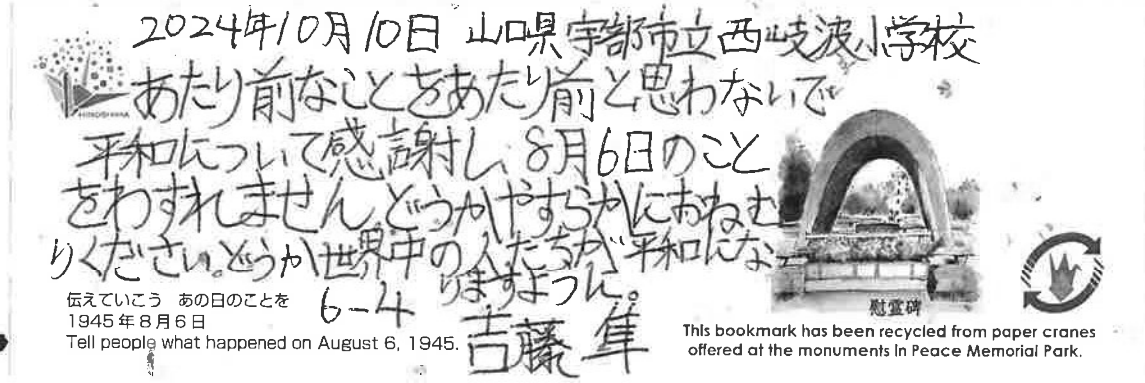 2024年10月10日 山口県宇部市立西岐波小学校
HIROSHIMA
あたり前なことをあたり前と思わないで
平和について感謝し、8月6日のこと
をわすれません。どうかやすらかにおねむ
りください。どうか世界中の人たちが平和にな
りますように。
6-4
吉藤 隼
慰霊碑
伝えていこう あの日のことを
1945年8月6日
Tell people what happened on August 6, 1945.
This bookmark has been recycled from paper cranes
offered at the monuments in Peace Memorial Park.